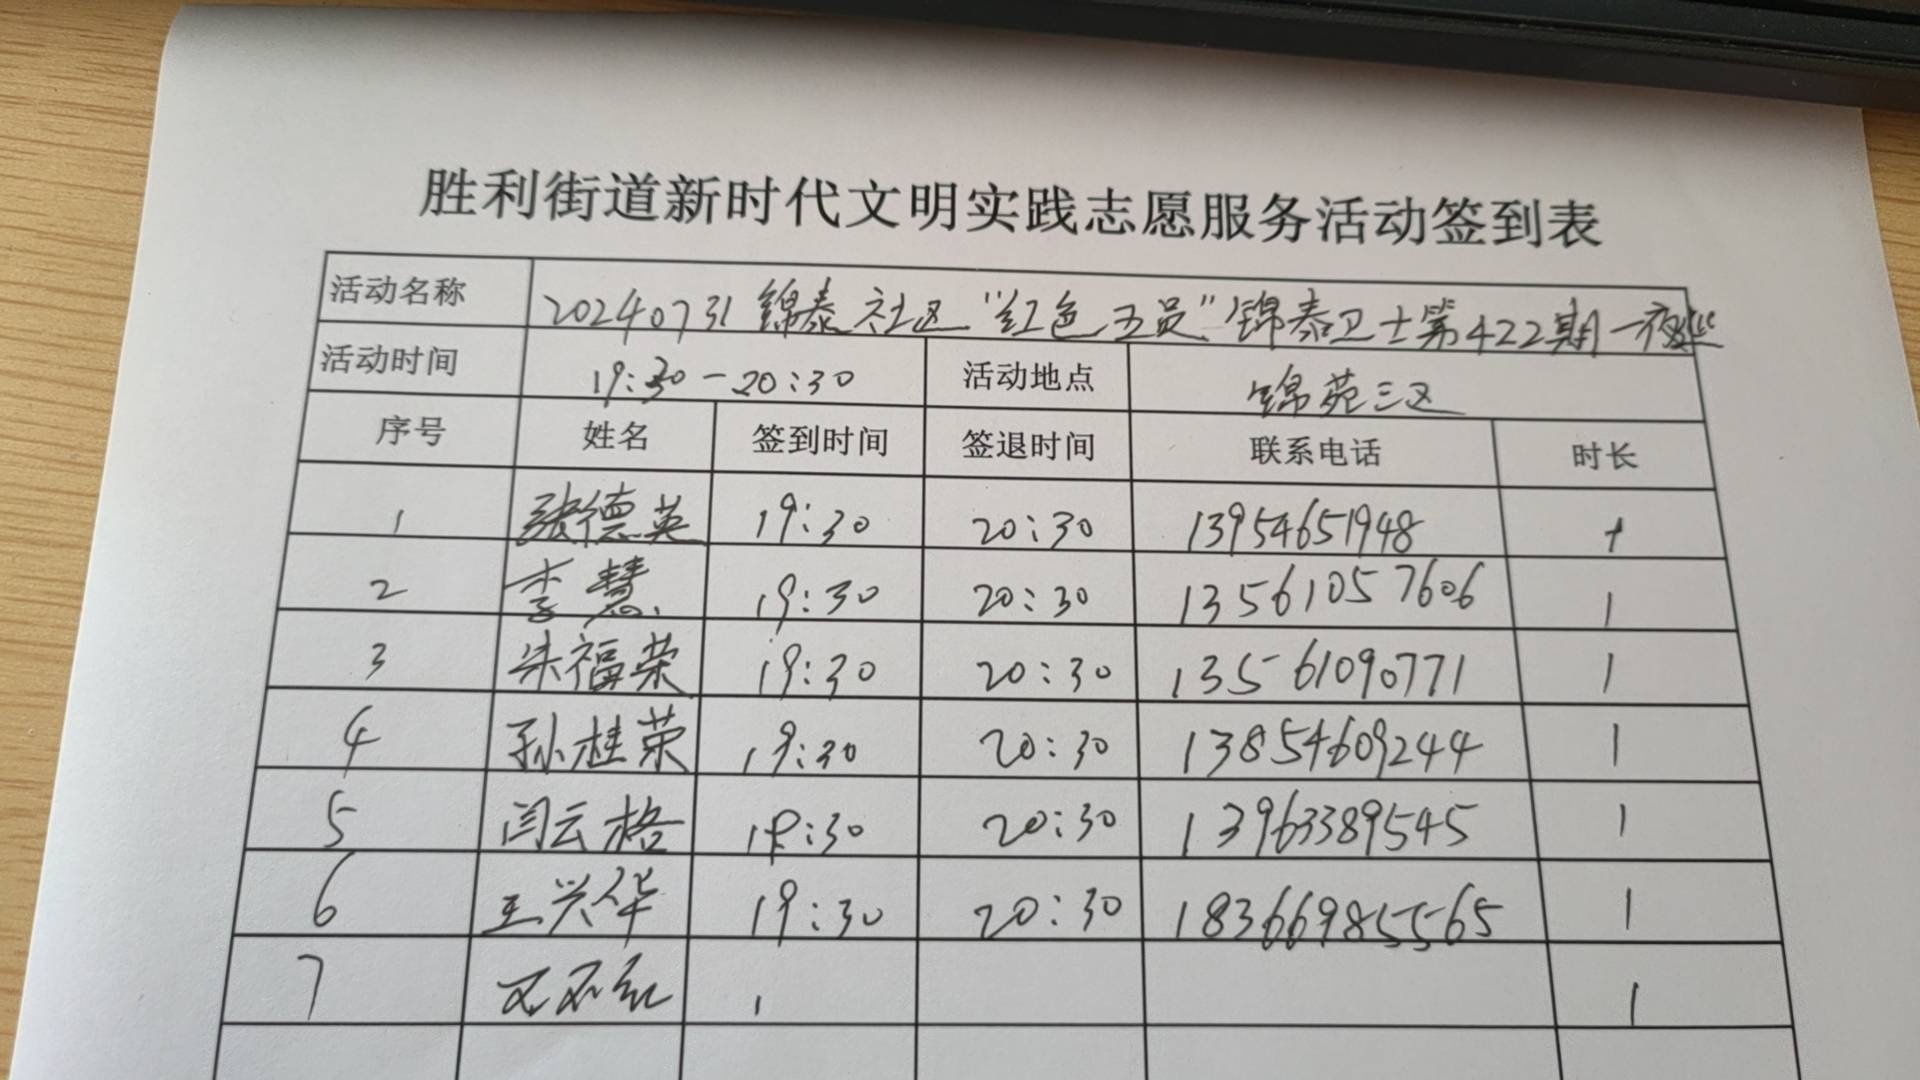 胜利街道新时代文明实践志愿服务活动签到表
活动名称 20240731锦泰社区“红色五员”锦泰卫士第422期一夜巡
活动时间 19:30-20:30 活动地点 锦苑三区
序号 姓名 签到时间 签退时间 联系电话 时长
1 张德英 19:30 20:30 13954651948 1
2 李慧 19:30 20:30 13561057606 1
3 朱福荣 19:30 20:30 13561090771 1
4 孙桂荣 19:30 20:30 13854609244 1
5 闫云格 19:30 20:30 13963389545 1
6 王兴华 19:30 20:30 18366985565 1
7 1 1